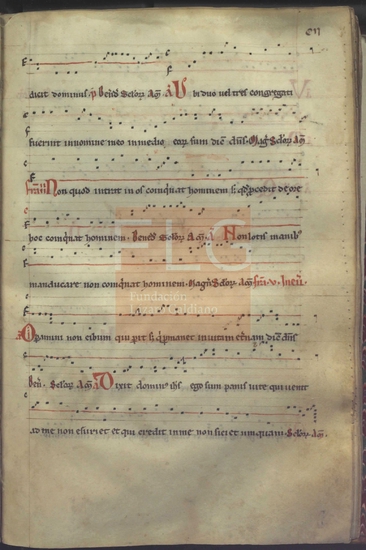 dicit dominus. p̃ Ben̄d Sclor Am̄ A Ubi duo vel tres congregati
fuerint in nomine meo in medio eor sum dic̄ dn̄s. Mag Sclor Am̄
Non quod intrat in os conquat hominem s; qð procedit de ore
hoc conquat hominem. Ben̄d Sclor Am̄ A Non lotis manib⁹
manducare non conquat hominem. Magn̄ Sclor. Am̄
FLC
Fundación
Lázaro Galdiano
Operamini non cibum qui perit s; qui permanet in vitam etn̄am dic̄ dn̄s
Ben̄. Sclor. Am̄ A Dixit domin⁹ ihs ego sum panis vite qui venit
ad me non esuriet et qui credit in me non siciet umquam. Sclor. Am̄.